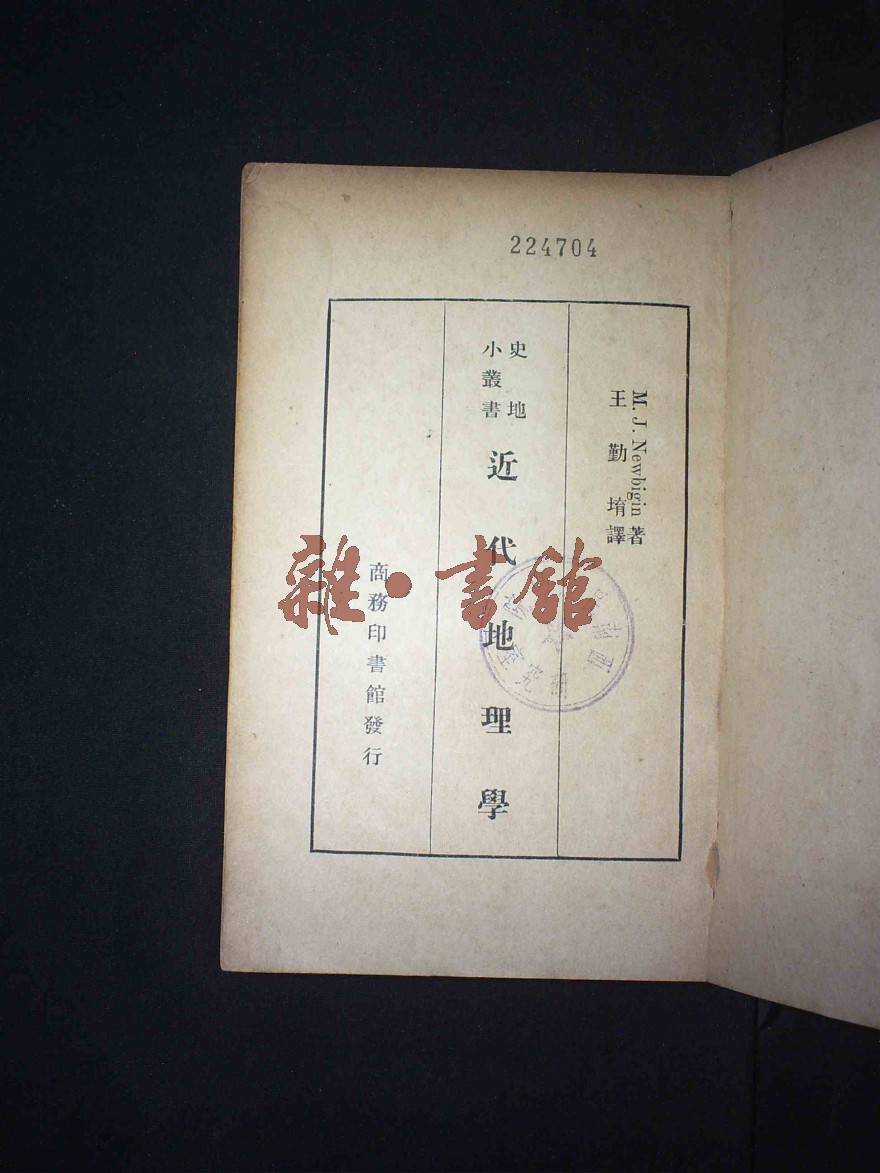 224704
M. J. Newbigin 著
王勤堉譯
史地
小叢書
近代地理學
商務印書館發行
雜·書館